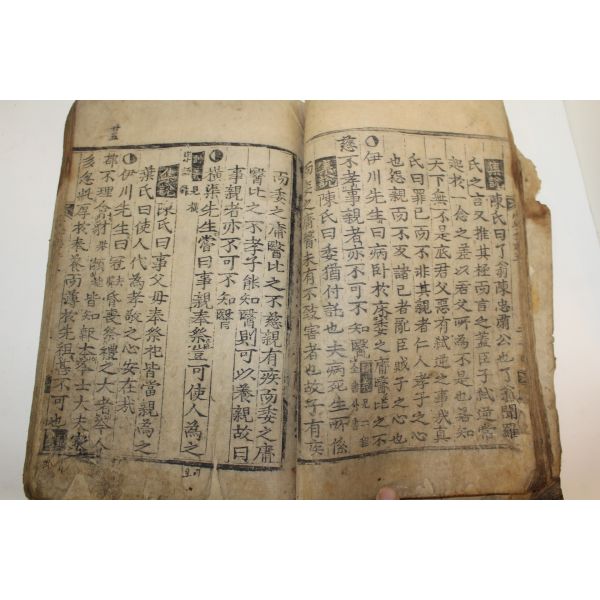 集說陳氏曰了翁陳忠肅公也了翁聞羅
氏之言又推其極而言之蓋臣子弑逆常
起於一念之差以君父所為不是也若知
天下無不是底君父惡有弑逆之事哉真
氏曰罪已而不非其親者仁人孝子之心
也怨親而不反諸已者亂臣賊子之心也
伊川先生曰病卧於床委之庸醫比之不
慈不孝事親者亦不可不知醫
集說陳氏曰委猶付託也夫病死生所係
而委之庸醫未有不致害者也故子有疾
而委之庸醫比之不慈親有疾而委之庸
醫比之不孝子能知醫則可以養親故曰
事親者亦不可不知醫
橫渠先生嘗曰事親奉祭豈可使人為之
集說陳氏曰事父母奉祭祀皆當親為之
葉氏曰使人代為孝敬之心安在哉
伊川先生曰冠昏喪祭禮之大者今人
都不理會豺獺皆知報本今士大夫家
多忽此厚於奉養而薄於先祖甚不可也